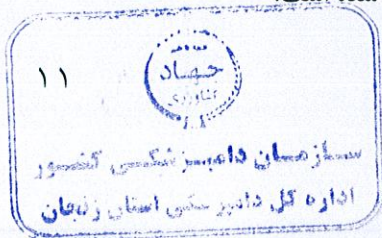 ۱۱
جهاد
کشاورزی
سازمان دامپزشکی کشور
اداره کل دامپزشکی استان زنجان